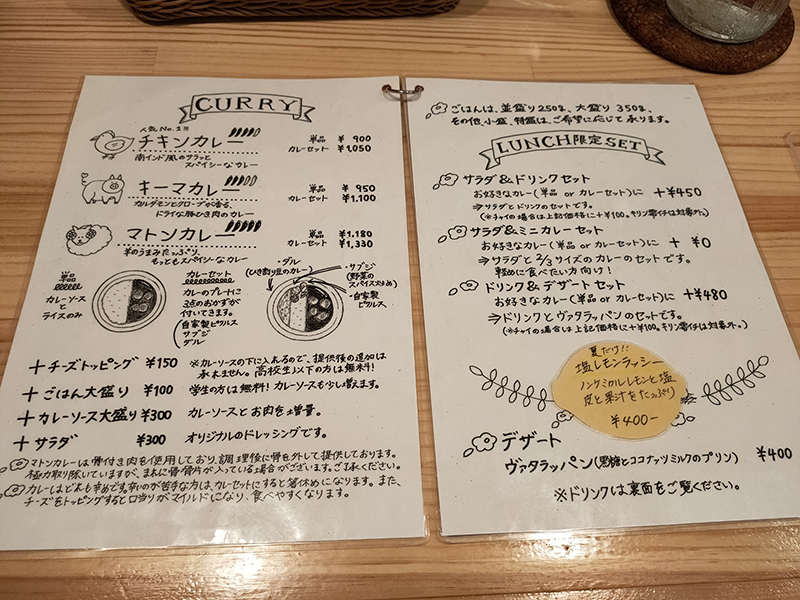 CURRY
人気No.1!!
チキンカレー
単品 ¥ 900
カレーセット ¥1,050
南インド風のサラッと
スパイシーなカレー
キーマカレー
単品 ¥ 950
カレーセット ¥1,100
カルダモンとクローブが香る、
ドライな豚ひき肉のカレー
マトンカレー
単品 ¥1,180
カレーセット ¥1,330
羊のうまみたっぷり。
もっともスパイシーなカレー
単品
カレーソース
と
ライスのみ
カレーセット
カレーのプレートに
3点のおかずが
付いてきます。
(自家製ピクルス
サブジ
ダル)
・ダル
(ひき割り豆のカレー)
・サブジ
(野菜の
スパイス炒め)
・自家製
ピクルス
+チーズトッピング ¥150
※カレーソースの下に入れるので、提供後の追加は
承れません。高校生以下の方は無料!
+ごはん大盛り ¥100 学生の方は無料!カレーソースも少し増えます。
+カレーソース大盛り ¥300 カレーソースとお肉を増量。
+サラダ ¥300 オリジナルのドレッシングです。
マトンカレーは骨付き肉を使用しており、調理後に骨を外して提供しております。
極力取り除いていますが、まれに骨片が入っている場合がございます。ご了承ください。
カレーはどれも辛めです。辛いのが苦手な方は、カレーセットにすると箸休めになります。また、
チーズをトッピングすると口当りがマイルドになり、食べやすくなります。
ごはんは、並盛り250g、大盛り350g、
その他、小盛、特盛は、ご希望に応じて承ります。
LUNCH限定SET
サラダ&ドリンクセット
お好きなカレー(単品 or カレーセット)に +¥450
⇒サラダとドリンクのセットです。
(※チャイの場合は上記価格に+¥100。キリン零イチは対象外。)
サラダ&ミニカレーセット
お好きなカレー(単品 or カレーセット)に + ¥0
⇒サラダと2/3サイズのカレーのセットです。
軽めに食べたい方向け!
ドリンク&デザートセット
お好きなカレー(単品 or カレーセット)に +¥480
⇒ドリンクとヴァタラッパンのセットです。
(※チャイの場合は上記価格に+¥100。キリン零イチは対象外。)
夏だけ!!
塩レモンラッシー
ノンケミカルレモンと塩
皮と果汁をたっぷり
¥400-
デザート
ヴァタラッパン(黒糖とココナッツミルクのプリン) ¥400
※ドリンクは裏面をご覧ください。